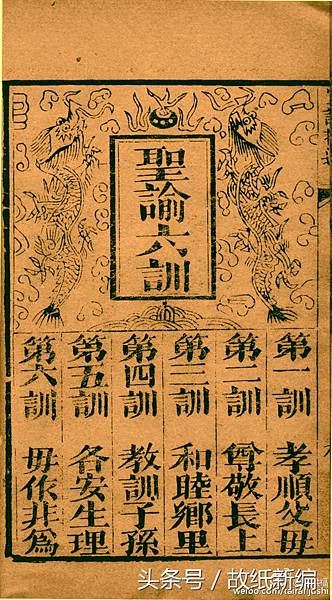 聖諭六訓
第一訓 孝順父母
第二訓 尊敬長上
第三訓 和睦鄉里
第四訓 教訓子孫
第五訓 各安生理
第六訓 毋作非為
头条号 / 故纸新编